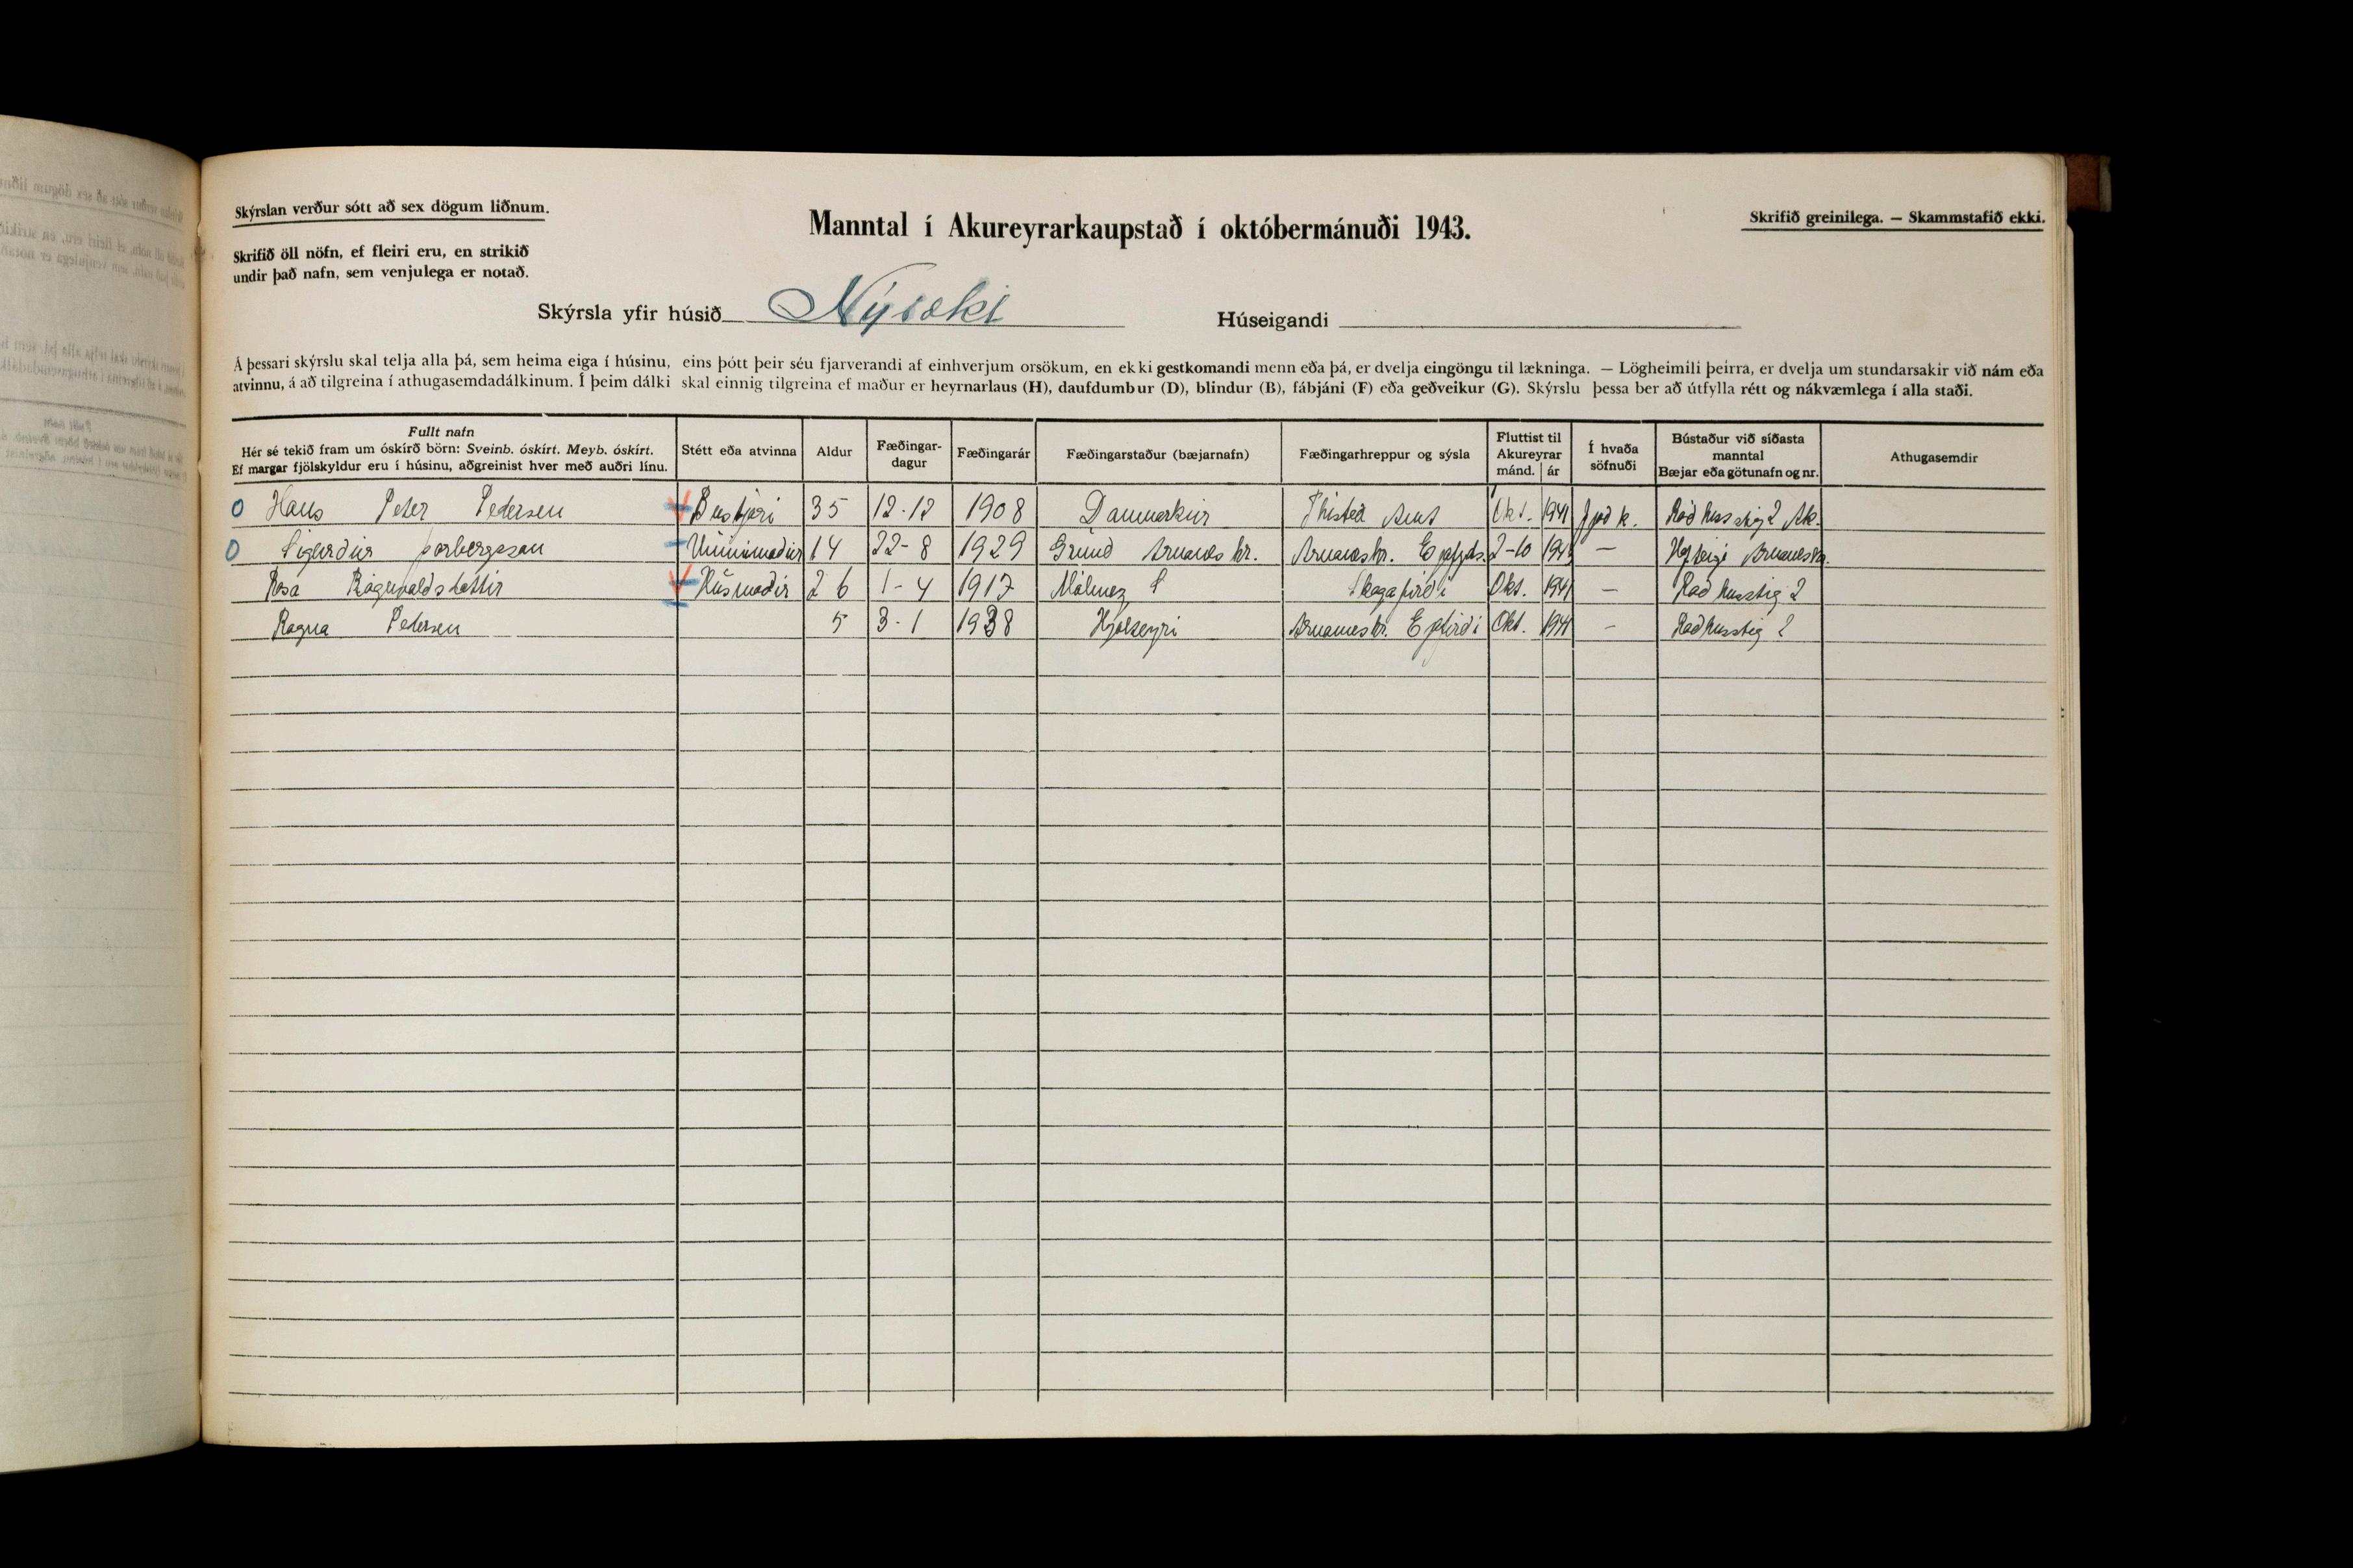 Skýrslan verður sótt að sex dögum liðnum.
Skrifið öll nöfn, ef fleiri eru, en strikið
undir það nafn, sem venjulega er notað.
Manntal í Akureyrarkaupstað í októbermánuði 1943.
Skrifið greinilega. — Skammstafið ekki.
Skýrsla yfir húsið Nýræki
Húseigandi
Á þessari skýrslu skal telja alla þá, sem heima eiga í húsinu, eins þótt þeir séu fjarverandi af einhverjum orsökum, en ekki gestkomandi menn eða þá, er dvelja eingöngu til lækninga. — Lögheimili þeirra, er dvelja um stundarsakir við nám eða
atvinnu, á að tilgreina í athugasemdadálkinum. Í þeim dálki skal einnig tilgreina ef maður er heyrnarlaus (H), daufdumbur (D), blindur (B), fábjáni (F) eða geðveikur (G). Skýrslu þessa ber að útfylla rétt og nákvæmlega í alla staði.
Fullt nafn
Hér sé tekið fram um óskírð börn: Sveinb. óskírt. Meyb. óskírt.
Ef margar fjölskyldur eru í húsinu, aðgreinist hver með auðri línu.
Stétt eða atvinna
Aldur
Fæðingar-
dagur
Fæðingarár
Fæðingarstaður (bæjarnafn)
Fæðingarhreppur og sýsla
Fluttist til
Akureyrar
mánd. ár
Í hvaða
söfnuði
Bústaður við síðasta
manntal
Bæjar eða götunafn og nr.
Athugasemdir
Hans Peter Pedersen Bústjóri 35 12-12 1908 Danmörkur Thisted Amt Okt. 1941 Þjóðk. Ráðhusstig 2 Ak.
Sigurður Þorbergsson Vinnumaður 14 22-8 1929 Grund Arnanes hr. Arnaneshr. 2-10 — Arnaneshr.
Rosa Rögnvaldsdottir Húsmoðir 26 1-4 1917 Málmey Skagafirði Okt. 1941 — Raðhusstig 2
Ragna Pedersen 5 3-1 1938 Hjalteyri Arnaneshr. Eyjafirði Okt. 1941 — Raðhusstig 2